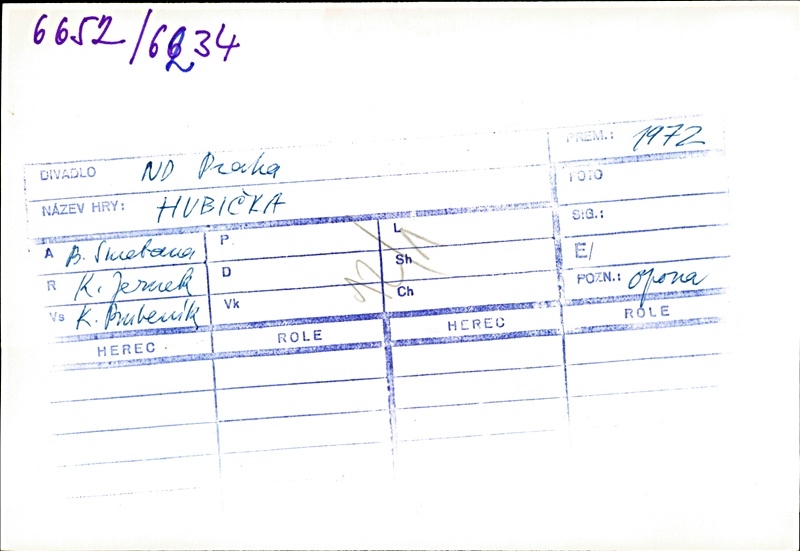 6652/66234
PREM.: 1972
DIVADLO ND Praha
FOTO
NÁZEV HRY: HUBIČKA
SIG.:
A B. Smetana P. L
E/
R K. Jernek D Sh
POZN.: opona
Vs K. Bubeník Vk Ch
12/1
HEREC ROLE HEREC ROLE